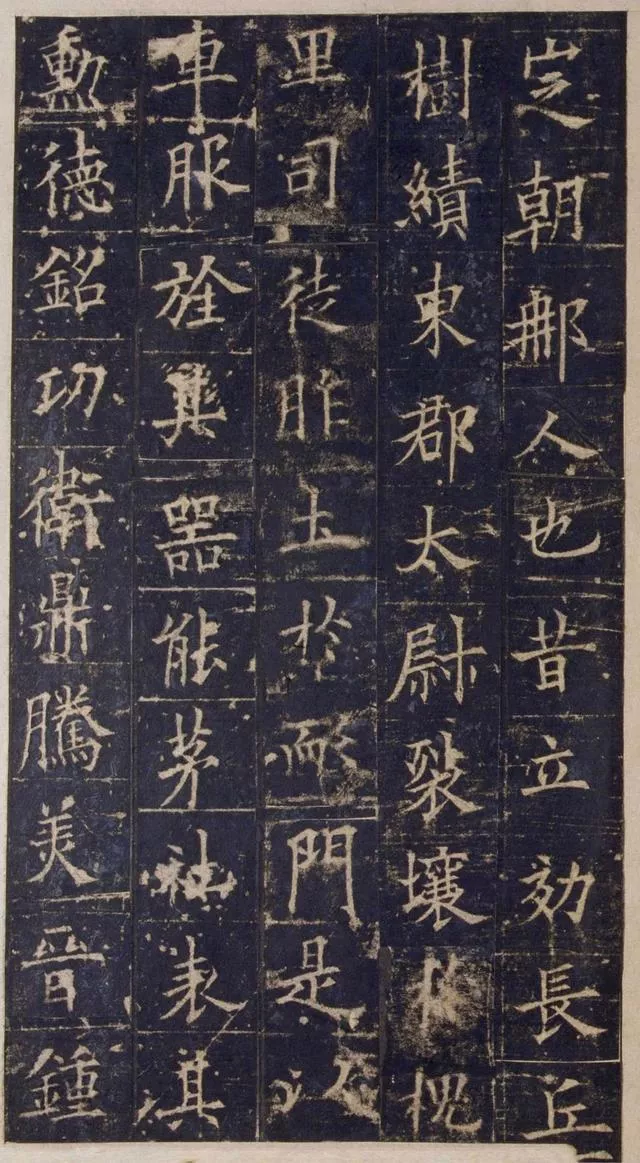 定朝那人也昔立効長丘
樹績東郡太尉裂壤於槐
里司徒胙土於耏門是以
車服旌其器能茅社表其
勳德銘功衛鼎騰美晉鍾